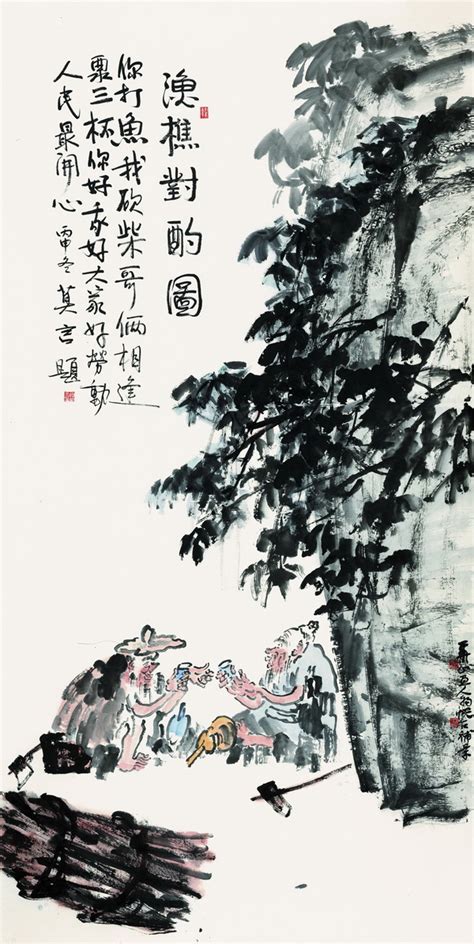 漁樵對酌圖
你打魚我砍柴哥倆相逢
三杯你好我好大家好勞動
人民最開心 冬 莫言題